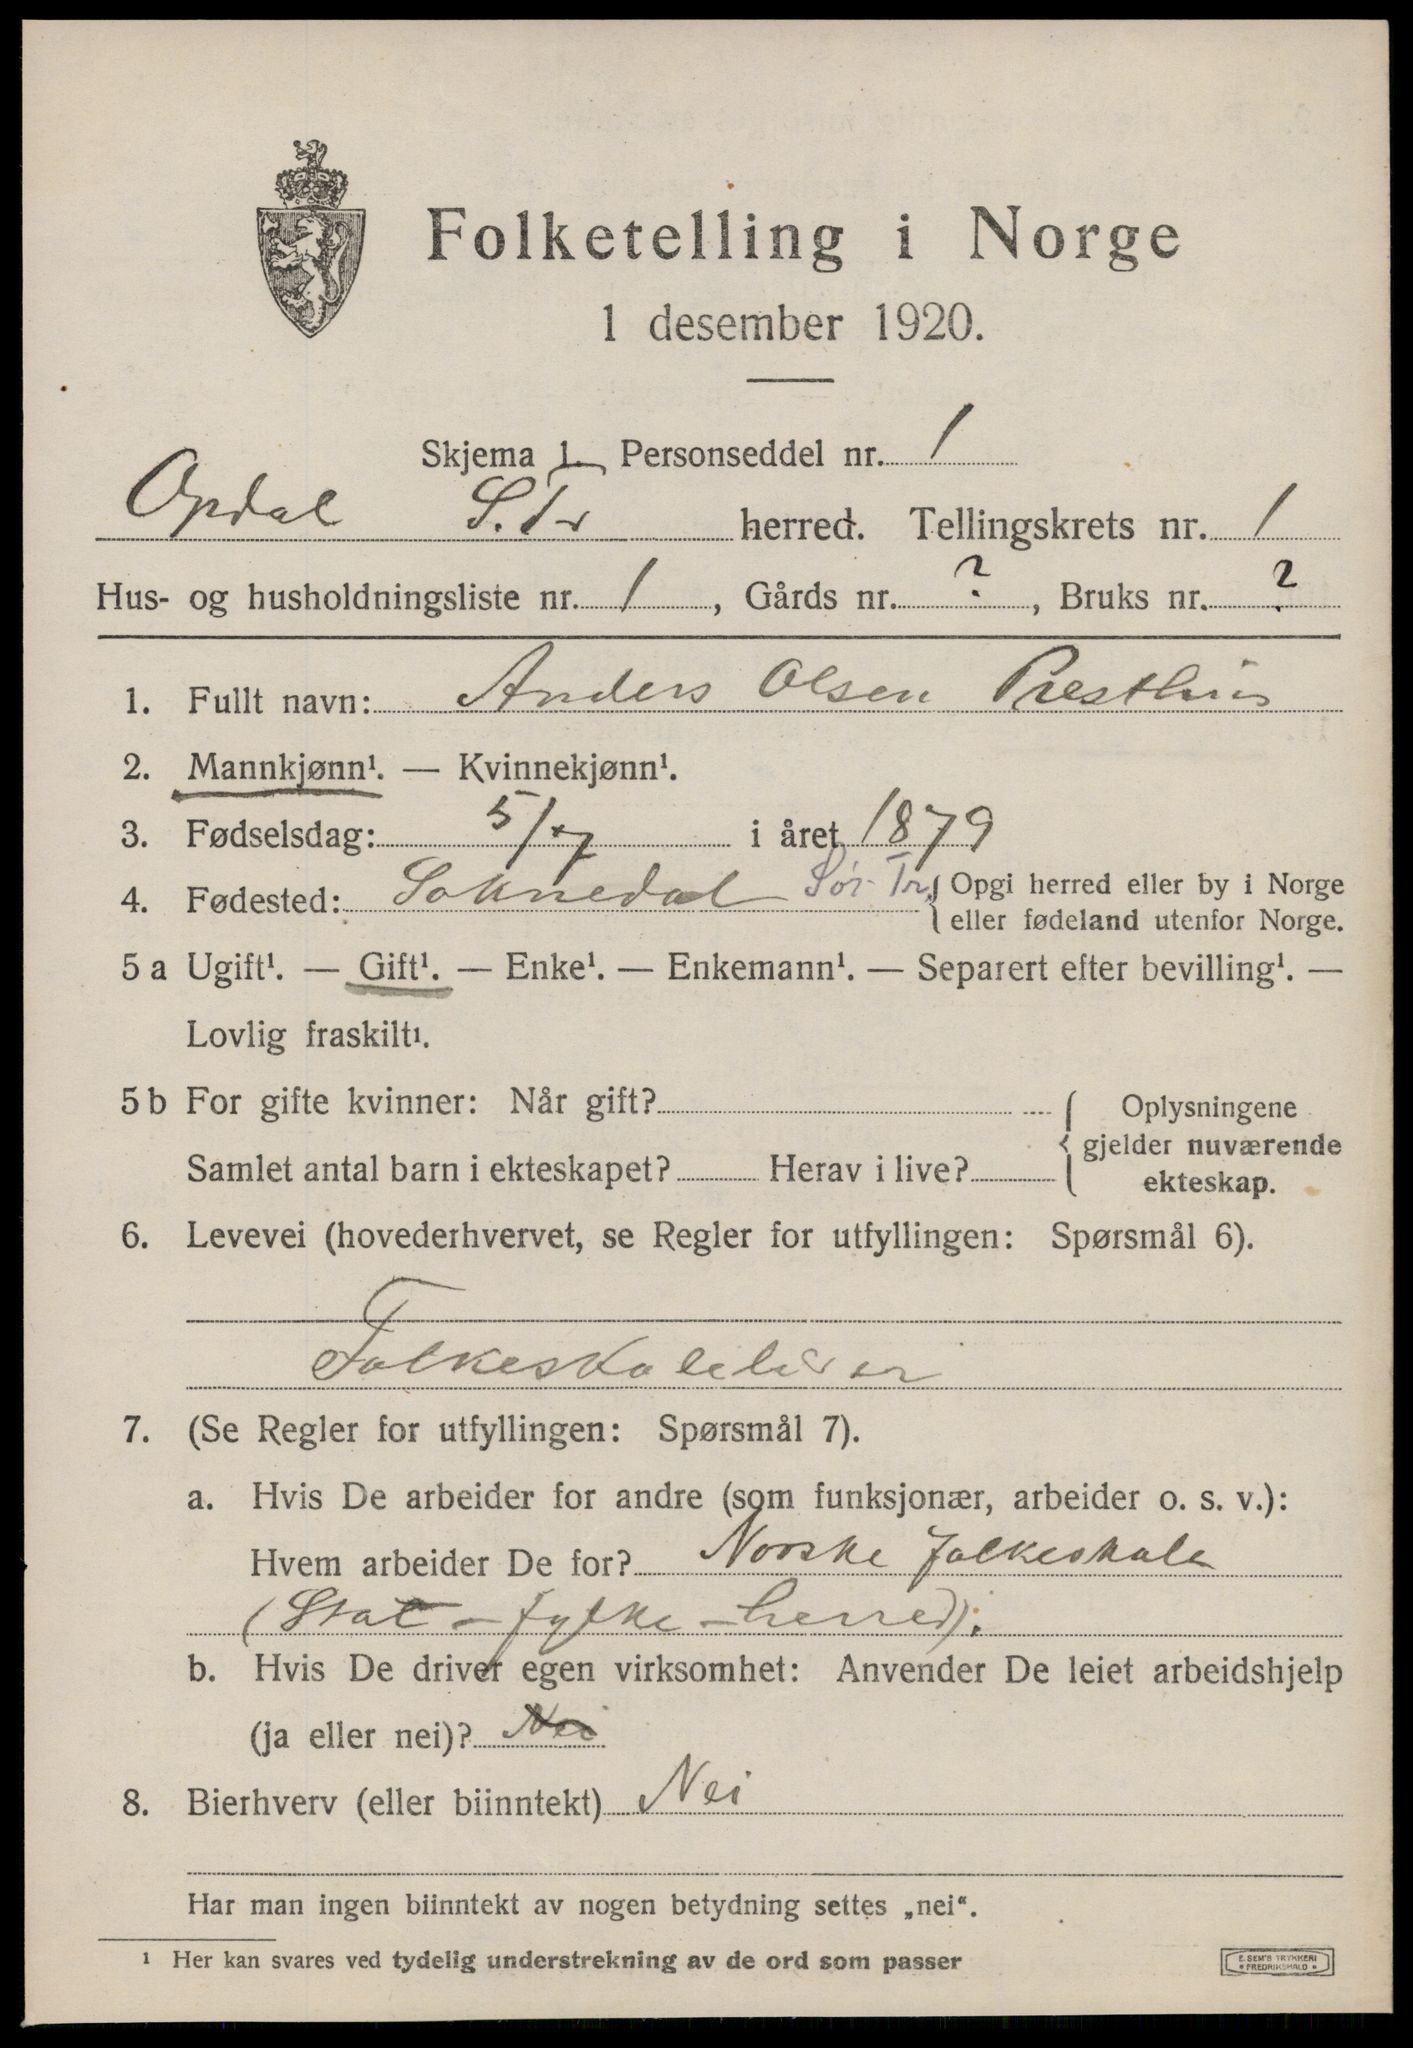 Folketelling i Norge
1 desember 1920.
Skjema 1. Personseddel nr. 1
Opdal S. Tr herred. Tellingskrets nr. 1
Hus- og husholdningsliste nr. 1, Gårds nr. ?, Bruks nr. ?
1. Fullt navn: Anders Olsen Presthus
2. Mannkjønn¹. — Kvinnekjønn¹.
3. Fødselsdag: 5/7 i året 1879
4. Fødested: Soknedal Sør-Tr. { Opgi herred eller by i Norge
eller fødeland utenfor Norge.
5 a Ugift¹. — Gift¹. — Enke¹. — Enkemann¹. — Separert efter bevilling¹. —
Lovlig fraskilt¹.
5 b For gifte kvinner: Når gift? { Oplysningene
gjelder nuværende
Samlet antal barn i ekteskapet? Herav i live?
ekteskap.
6. Levevei (hovederhvervet, se Regler for utfyllingen: Spørsmål 6).
Folkeskolelærer
7. (Se Regler for utfyllingen: Spørsmål 7).
a. Hvis De arbeider for andre (som funksjonær, arbeider o. s. v.):
Hvem arbeider De for? Norske folkeskole
(Stat - fylke - herred).
b. Hvis De driver egen virksomhet: Anvender De leiet arbeidshjelp
(ja eller nei)? Nei
8. Bierhverv (eller biinntekt) Nei
Har man ingen biinntekt av nogen betydning settes „nei“.
¹ Her kan svares ved tydelig understrekning av de ord som passer
E. SEM'S TRYKKERI
* FREDRIKSHALD *